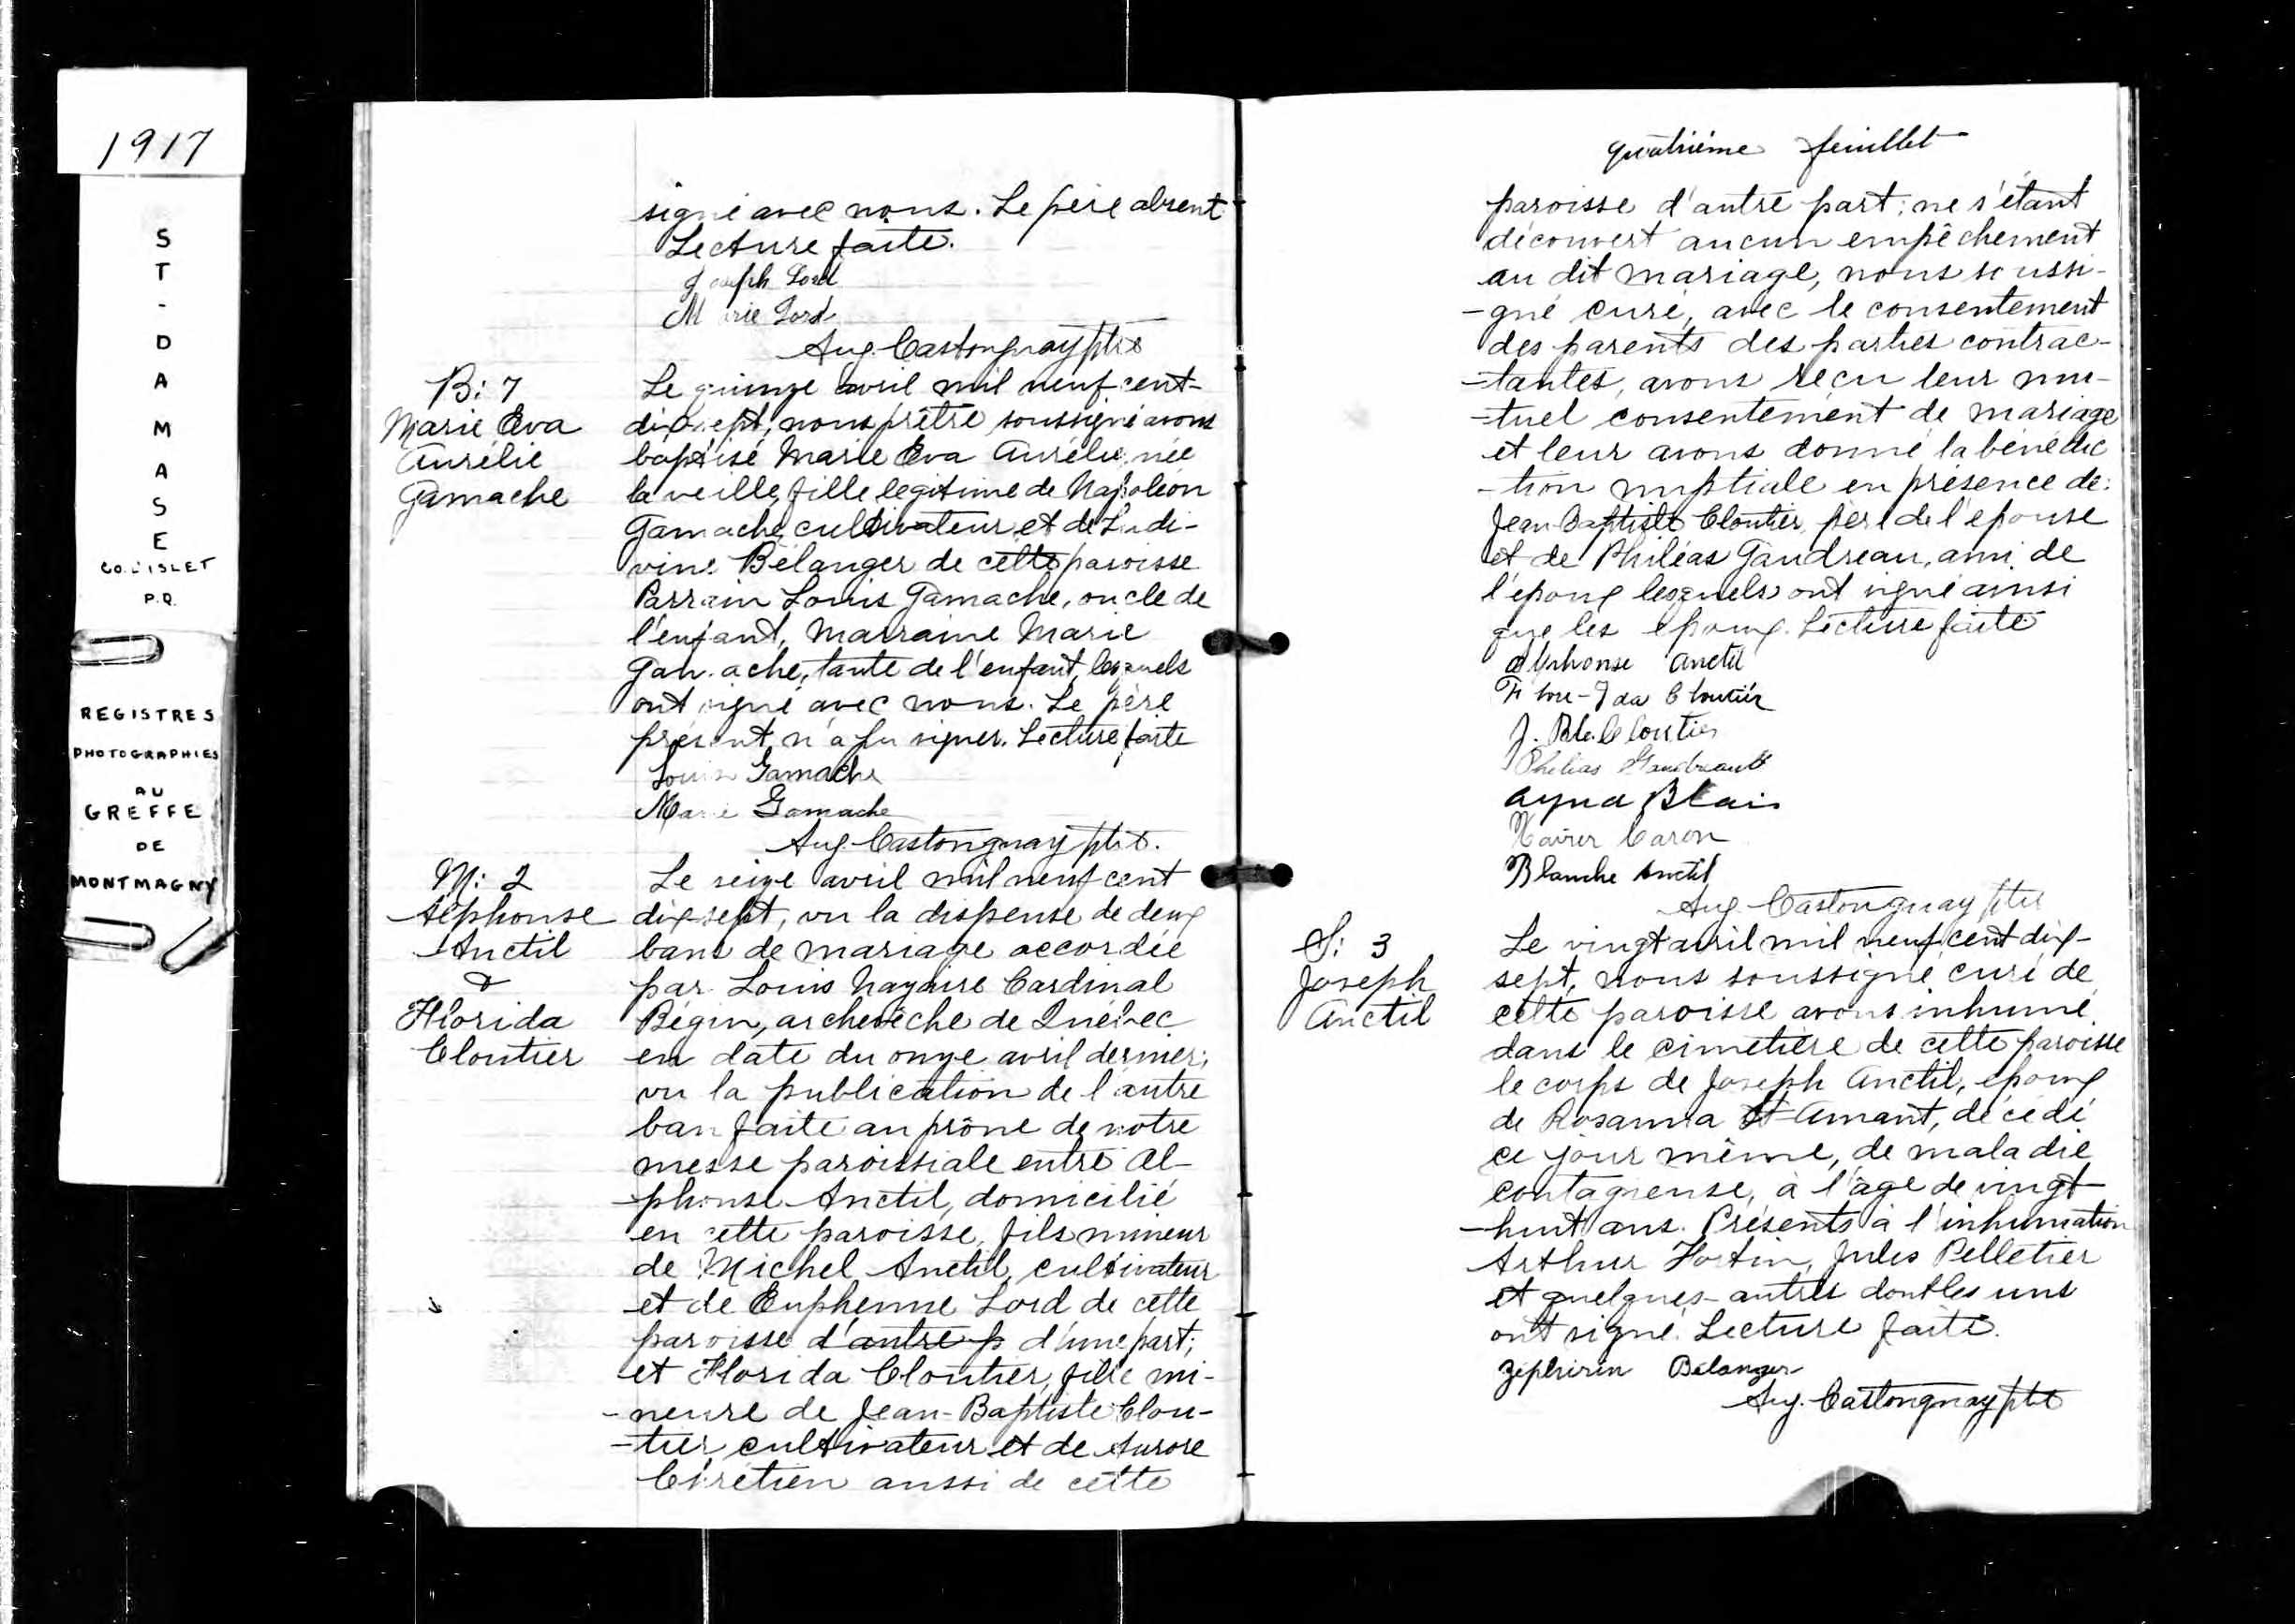 1917
ST-DAMASE
CO. L'ISLET
P.Q.
REGISTRES
PHOTOGRAPHIES
AU
GREFFE
DE
MONTMAGNY
signé avec nous. Le père absent
Lecture faite.
Joseph Lord
Marie Lord
Aug. Castonguay ptre
B: 7
Marie Eva
Aurélie
Gamache
Le quinze avril mil neuf cent-
dix sept, nous prêtre soussigné avons
baptisé Marie Eva Aurélie, née
la veille, fille légitime de Napoléon
Gamache, cultivateur et de Ludi-
vine Bélanger de cette paroisse
Parrain Louis Gamache, oncle de
l'enfant, Marraine Marie
Gamache, tante de l'enfant, lesquels
ont signé avec nous. Le père
présent n'a pu signer. Lecture faite
Louis Gamache
Marie Gamache
Aug. Castonguay ptre.
M: 2
Alphonse
Anctil
&
Florida
Cloutier
Le seize avril mil neuf cent
dix-sept, vu la dispense de deux
bans de mariage accordée
par Louis Nazaire Cardinal
Bégin, archevêche de Québec
en date du onze avril dernier;
vu la publication de l'autre
ban faite au prône de notre
messe paroissiale entre Al-
phonse Anctil, domicilié
en cette paroisse, fils mineur
de Michel Anctil, cultivateur
et de Euphemme Lord de cette
paroisse d'autre p d'une part;
et Florida Cloutier, fille mi-
-neure de Jean-Baptiste Clou-
-tier, cultivateur et de Aurore
Chrétien aussi de cette
quatrième feuillet
paroisse d'autre part; ne s'étant
découvert aucun empêchement
au dit mariage, nous soussi-
-gné curé, avec le consentement
des parents des parties contrac-
-tantes, avons reçu leur mu-
-tuel consentement de mariage
et leur avons donné la bénédic
-tion nuptiale en présence de:
Jean-Baptiste Cloutier, père de l'épouse
et de Philéas Gaudreau, ami de
l'époux lesquels ont signé ainsi
que les époux. Lecture faite
Alphonse Anctil
Flore-Ida Cloutier
J. Bte. Cloutier
Philias Gaudreault
Ayna Blais
Xavier Caron
Blanche Anctil
Aug. Castonguay ptre
S: 3
Joseph
Anctil
Le vingt avril mil neuf cent dix-
sept, nous soussigné curé de
cette paroisse avons inhumé
dans le cimetière de cette paroisse
le corps de Joseph Anctil, époux
de Rosanna St-Amant, décédé
ce jour même, de maladie
contagieuse, à l'âge de vingt
-huit ans. Présents à l'inhumation
Arthur Fortin, Jules Pelletier
et quelques-autres dont les uns
ont signé. Lecture faite.
Zéphirin Bélanger
Aug. Castonguay ptre